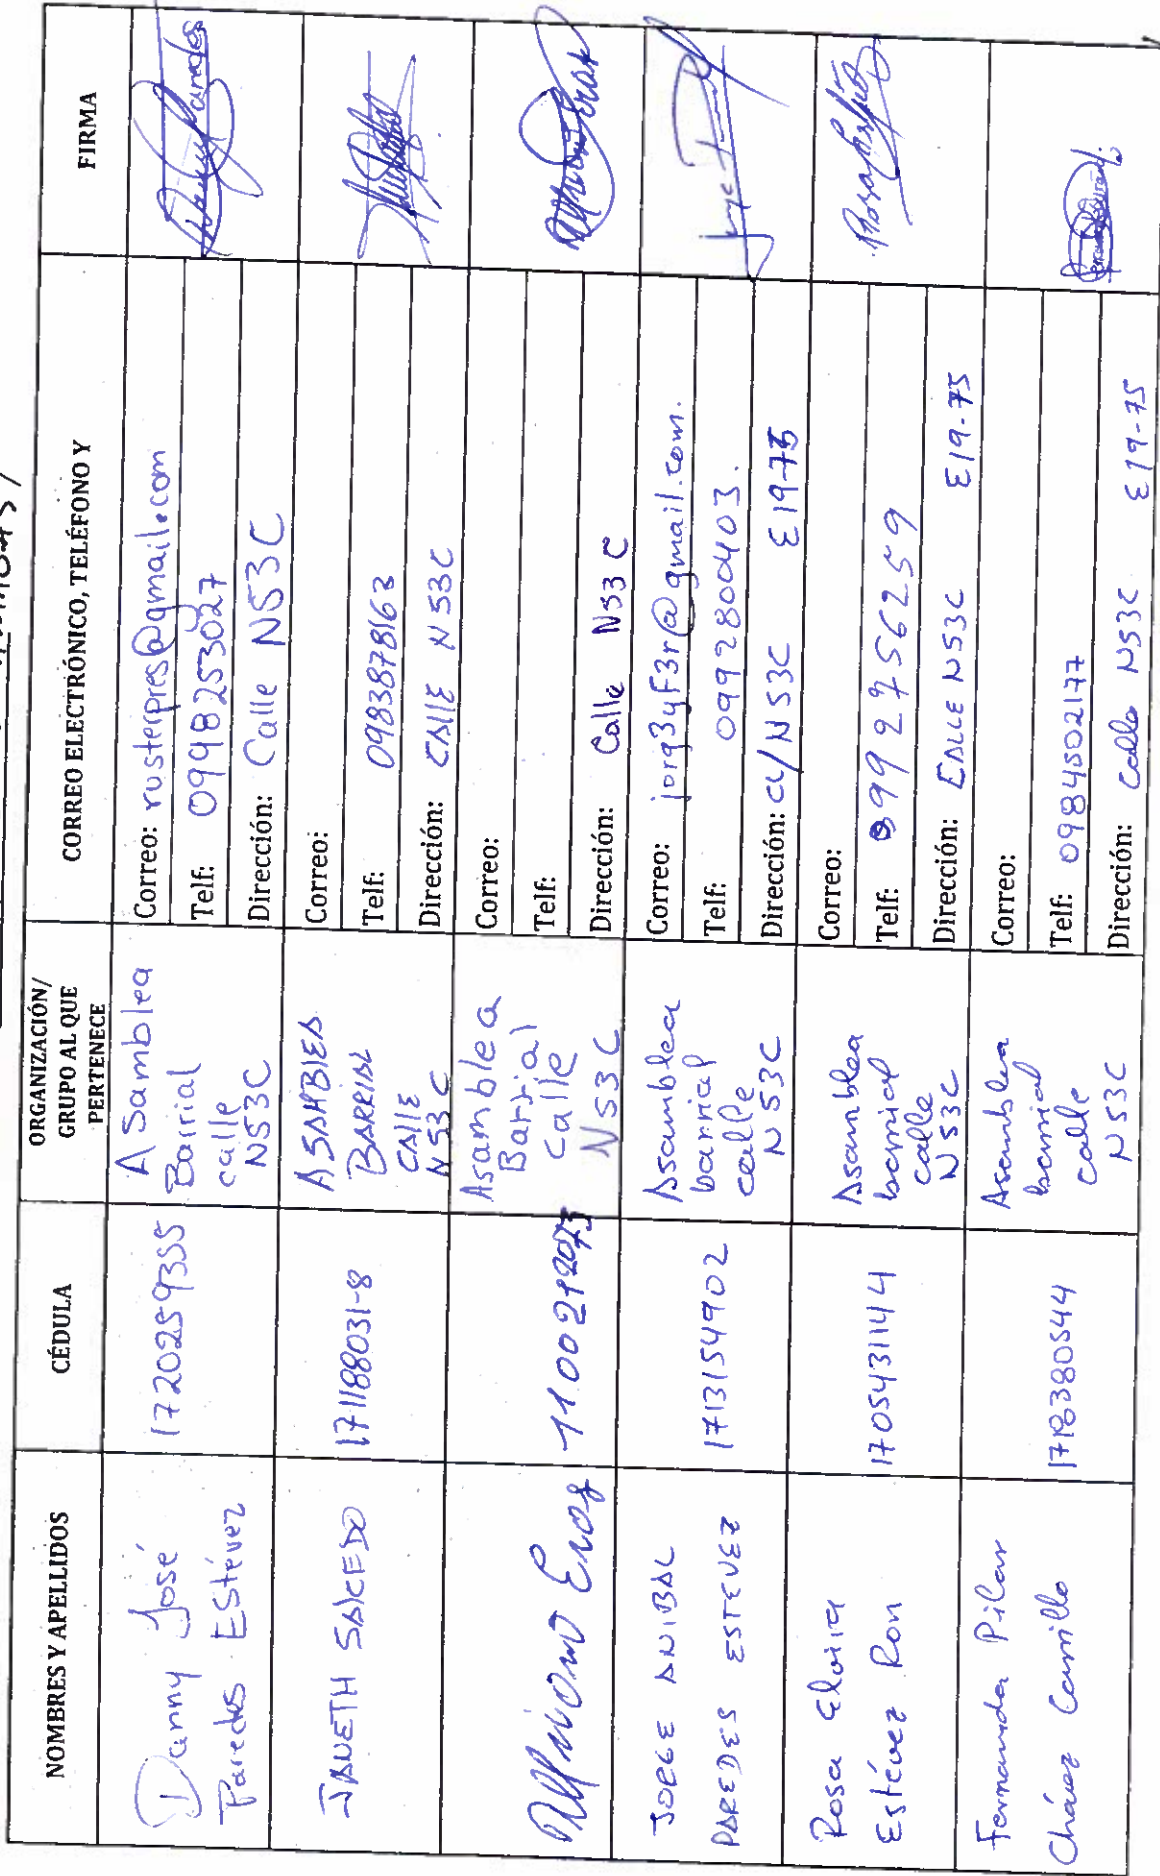 NOMBRES Y APELLIDOS
CÉDULA
ORGANIZACIÓN/
GRUPO AL QUE
PERTENECE
CORREO ELECTRÓNICO, TELÉFONO Y
FIRMA
Danny José
Paredes Estévez
1720259355
Asamblea
Barrial
calle
N53C
Correo: rusterpres@gmail.com
Telf: 0998253027
Dirección: Calle N53C
JANETH SALCEDO
171188031-8
ASAMBLEA
BARRIAL
CALLE
N53C
Correo:
Telf: 0983878163
Dirección: CALLE N53C
Asamblea
Barrial
Calle
N53C
Correo:
Telf:
Dirección: Calle N53C
JORGE ANIBAL
PAREDES ESTEVEZ
1713154902
Asamblea
barrial
calle
N53C
Correo: jorg3yF3r@gmail.com.
Telf: 0992800403.
Dirección: C/N53C E19-75
Rosa Elvira
Estévez Ron
1705431144
Asamblea
barrial
calle
N53C
Correo:
Telf: 0992756259
Dirección: CALLE N53C E19-75
Fernanda Pilar
Chávez Carrillo
1718380544
Asamblea
barrial
calle
N53C
Correo:
Telf: 0984502177
Dirección: Calle N53C E19-75